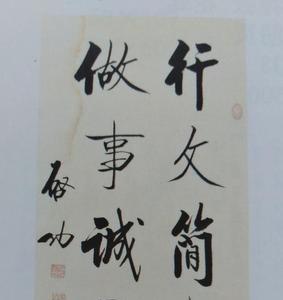 行文简
做事诚
启功